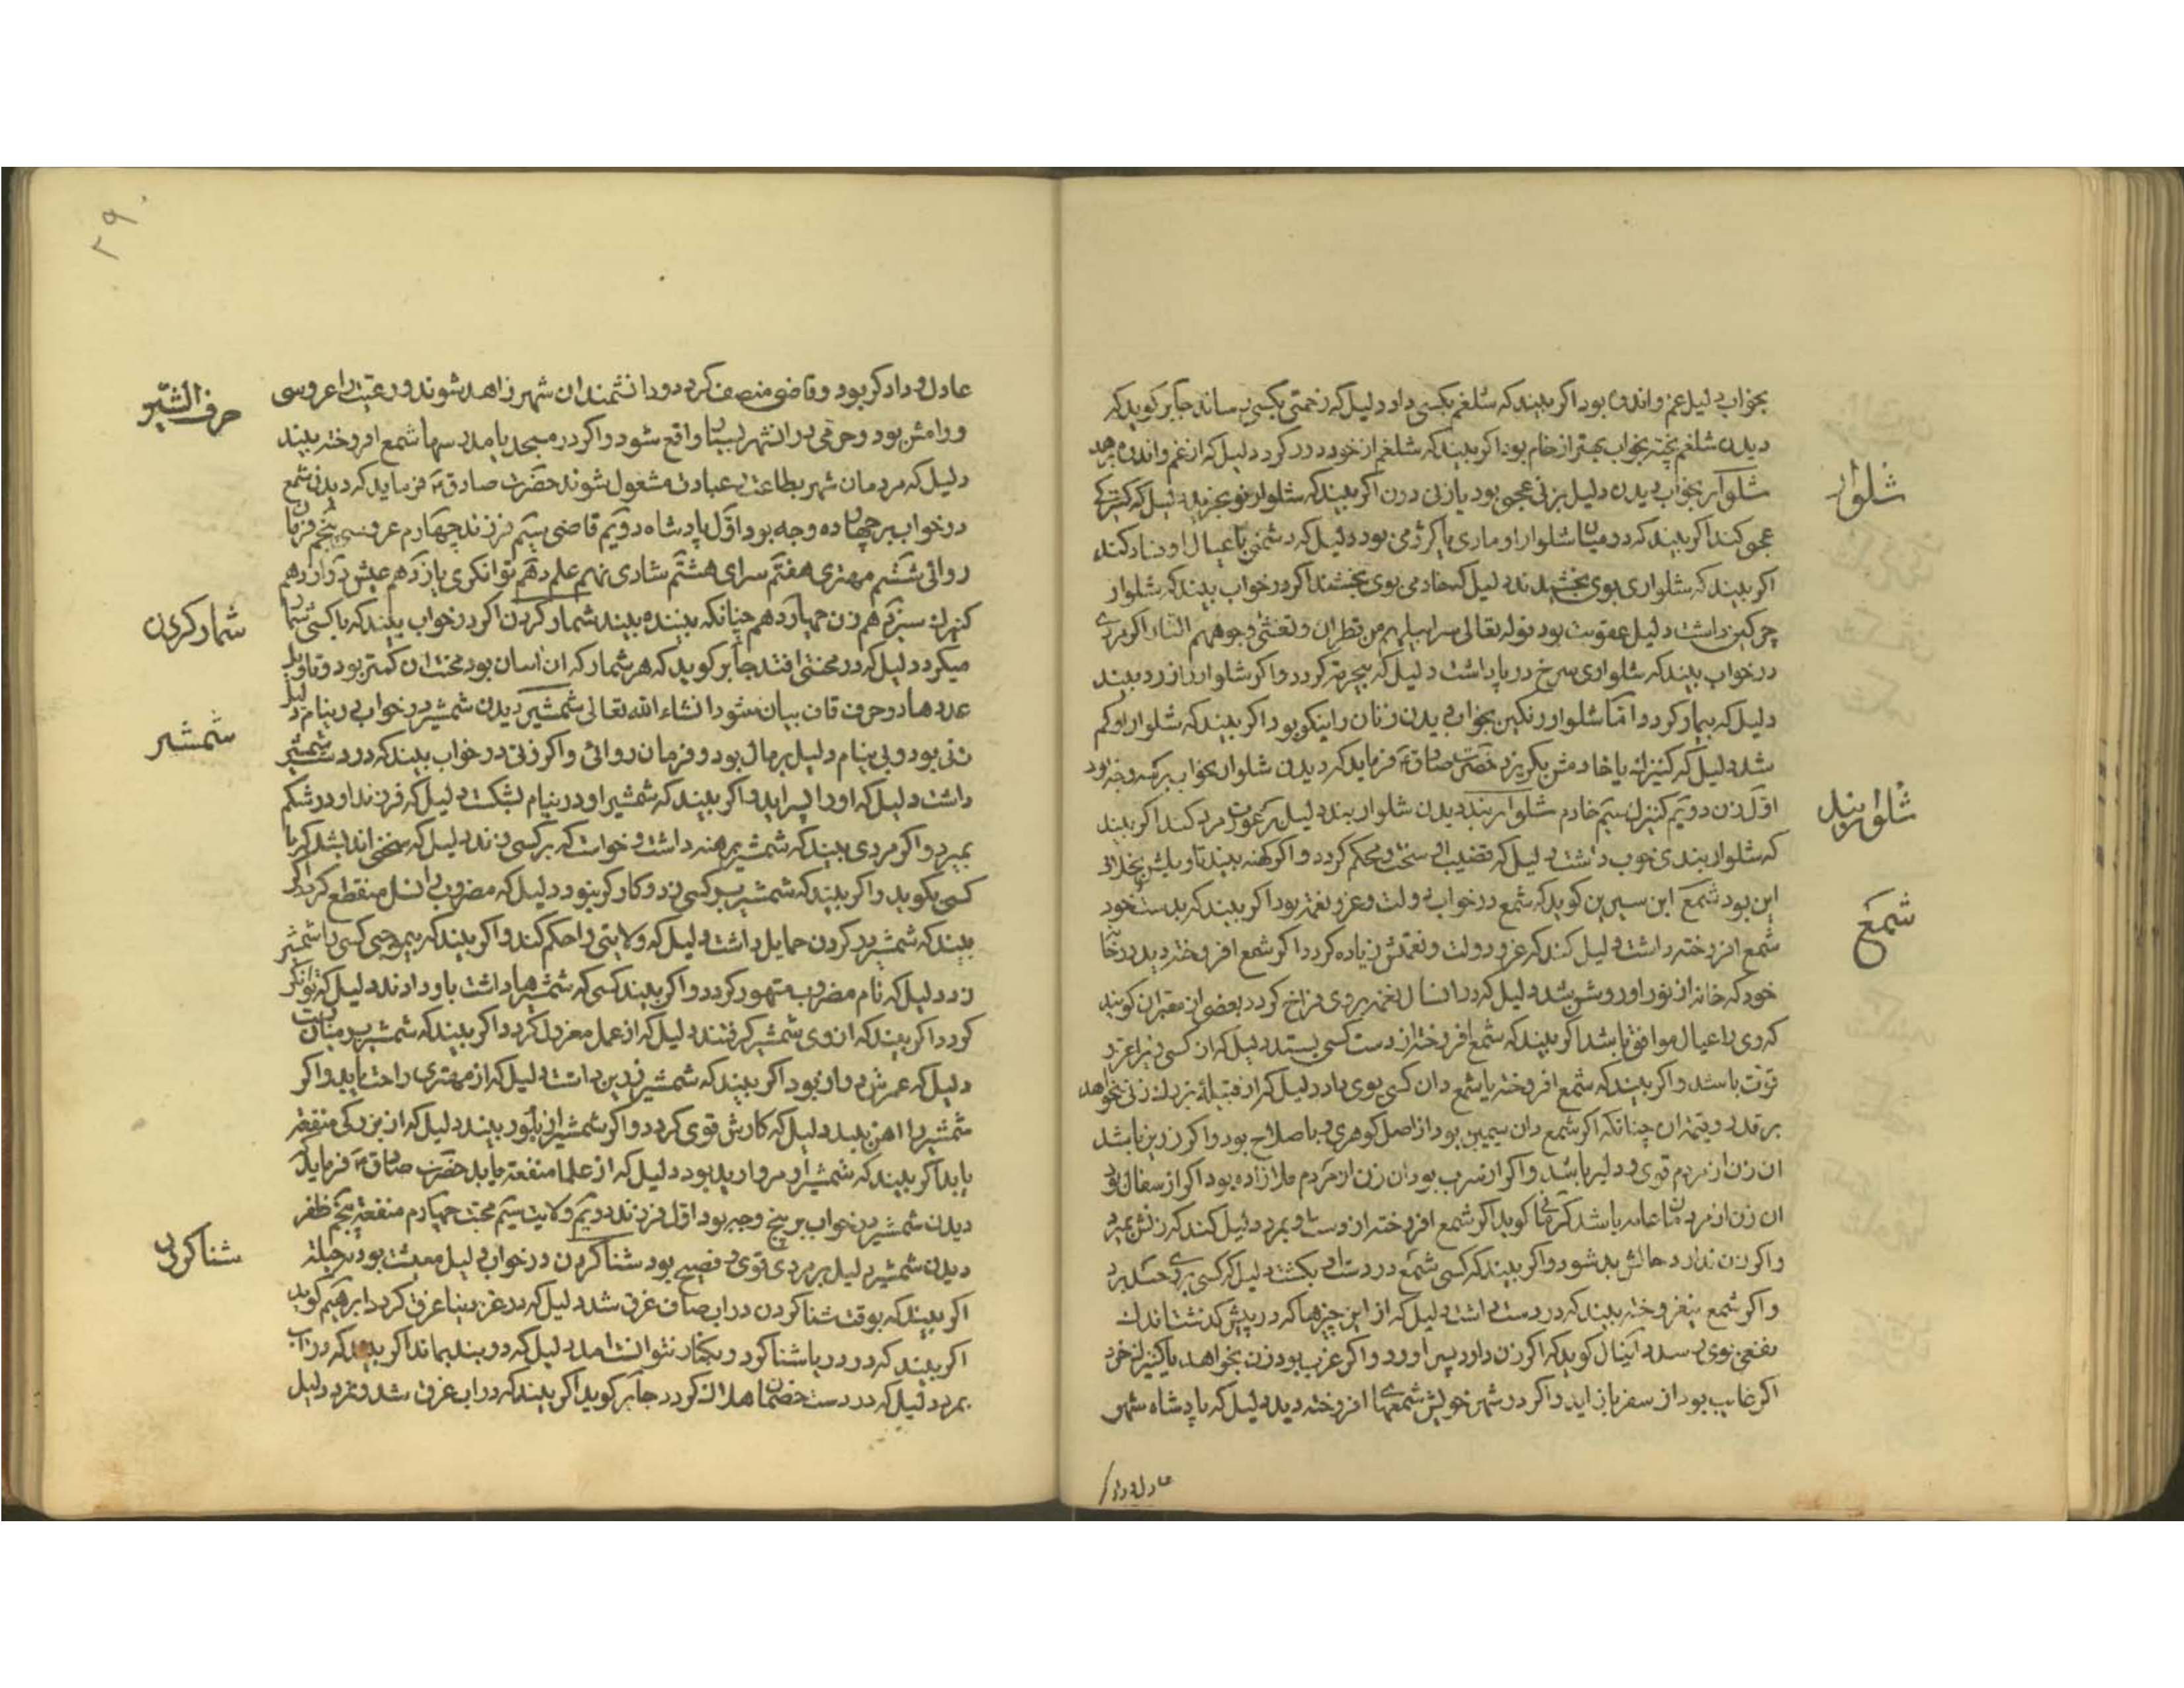 بخواب دلیل غم و اندوه بود اکر بیند که شلغم بکسی داد دلیل که زحمتی بکسی رساند جابر کوید که
دیدن شلغم پخته بخواب بهتر از خام بود اکر بیند که شلغم از خود دور کرد دلیل که از غم و اندوه برهد
شلوار
شلوار بخواب دیدن دلیل بزنی عجمی بود یا زنی دون اکر بیند که شلوار نو بخرید دلیل که کنیزکی
عجمی کند اکر بیند که در میان شلوار او ماری یا کژدمی بود دلیل که دشمنی با عیال او فساد کند
اکر بیند که شلواری بوی بخشیدند دلیل که خادمی بوی بخشند اکر در خواب بیند که شلوار
چرکین داشت دلیل عقوبت بود قوله تعالی سرابیلهم من قطران و تغشی وجوههم النار اکر مردی
در خواب بیند که شلواری سرخ در پا داشت دلیل که بیحرمة کردد و اکر شلوار زرد بیند
دلیل که بیمار کردد و اما شلوار رنکین بخواب دیدن زنان را نیکو بود اکر بیند که شلوار او کم
شد دلیل که کنیزک یا خادمش بکریزد حضرت صادق ع فرماید که دیدن شلوار بخواب بر سه وجه بود
شلواربند
اول زن دویم کنیزک سیم خادم شلواربند دیدن شلواربند دلیل بر عورت مرد کند اکر بیند
که شلواربندی خوب داشت دلیل که قضیب او سخت و محکم کردد و اکر کهنه بیند تاویلش بخلاف
شمع
این بود شمع ابن سیرین کوید که شمع در خواب دولت و عز و نعمة بود اکر بیند که بدست خود
شمع افروخته داشت دلیل کند که عز و دولت و نعمتش زیاده کردد اکر شمع افروخته دید در خانه
خود که خانه از نور او روشن شد دلیل که در انسال نعمة بر وی فراخ کردد بعضی از معبران کویند
که وی را عیال موافق باشد اکر بیند که شمع افروخته از دست کسی بستد دلیل که ان کسی را عز و
قوت باشد و اکر بیند که شمع افروخته یا شمع دان کسی بوی داد دلیل که از قبیلهٔ بزرک زنی بخواهد
بر قدر و قیمة ان چنانکه اکر شمع دان سیمین بود از اصل کوهری با صلاح بود و اکر زرین باشد
ان زن از مردم قوی و دلیر باشد و اکر از سرب بود ان زن از مردم ملازاده بود اکر از سفال بود
ان زن از مردمان عامه باشد کرمانی کوید اکر شمع افروخته از دست او بمرد دلیل کند که زنش بمیرد
و اکر زن ندارد حالش بد شود و اکر بیند که کسی شمع در دست او بکشت دلیل که کسی بر وی حسد برد
و اکر شمع نیفروخته بیند که در دست داشت دلیل که از این چیزها که در پیش کذشت اندک
نفعی بوی رسد دانیال کوید که اکر زن دارد پسر اورد و اکر عزب بود زن بخواهد یا کنیزک خرد
اکر غایب بود از سفر باز اید و اکر در شهر خویش شمعهای افروخته دید دلیل که پادشاه شهر
عادل و داد
۲۹۰
حرف الشین
عادل و دادکر بود و قاضی منصف کردد و دانشمندان شهر زاهد شوند و رعیت را عروسی
و رامش بود و خرمی در ان شهر بسیار واقع شود و اکر در مسجد یا مدرسها شمع افروخته بیند
دلیل که مردمان شهر بطاعت و عبادت مشغول شوند حضرت صادق ع فرماید که دیدن شمع
در خواب بر چهارده وجه بود اول پادشاه دویم قاضی سیم فرزند چهارم عروسی پنجم فرمان
روائی ششم مهتری هفتم سرای هشتم شادی نهم علم دهم توانکری یازدهم عیش دوازدهم
شمار کردن
کنیزک سیزدهم زن چهاردهم چنانکه بیننده بیند شمار کردن اکر در خواب بیند که با کسی شمار
میکرد دلیل که در محنتی افتد جابر کوید که هر شمار که ان اسان بود محنت ان کمتر بود و تاویل
شمشیر
عددها در حرف قاف بیان شود انشاء الله تعالی شمشیر دیدن شمشیر در خواب در نیام دلیل
زنی بود و بی نیام دلیل بر مال بود و فرمان روائی و اکر زنی در خواب بیند که در دست شمشیر
داشت دلیل که او را پسر اید و اکر بیند که شمشیر او در نیام بشکست دلیل که فرزند او در شکم
بمیرد و اکر مردی بیند که شمشیر برهنه داشت و خواست که بر کسی زند دلیل که سخنی اندیشد که با
کسی بکوید و اکر بیند که شمشیر بر کسی زد و کارکر نبود دلیل که مضروب را نسل منقطع کردد اکر
بیند که شمشیر در کردن حمایل داشت دلیل که ولایتی را حکم کند و اکر بیند که بیموجبی کسی را شمشیر
زد دلیل که نام مضروب مشهور کردد و اکر بیند کسی که شمشیرها داشت باو دادند دلیل که توانکر
کردد اکر بیند که از وی شمشیر کرفتند دلیل که از عمل معزول کردد اکر بیند که شمشیر بر میان بست
دلیل که عمرش دراز بود اکر بیند که شمشیر زرین داشت دلیل که از مهتری راحت یابد و اکر
شمشیر را اهن بیند دلیل که کارش قوی کردد و اکر شمشیر از بلور بیند دلیل که از بزرکی منفعة
یابد اکر بیند که شمشیر او مروارید بود دلیل که از علما منفعة یابد حضرت صادق ع فرماید که
دیدن شمشیر در خواب بر پنج وجه بود اول فرزند دویم ولایت سیم محبت چهارم منفعة پنجم ظفر
شنا کردن
دیدن شمشیر دلیل بر مردی قوی و فصیح بود شنا کردن در خواب دلیل معیشت بود بر حیلة
اکر بیند که بوقت شنا کردن در اب صاف غرق شد دلیل که در عز دنیا غرق کردد ابرهیم کوید
اکر بیند که در دریا شنا کرد و بکنار نتوانست امد دلیل که در بند بماند اکر بیند که در ان اب
بمرد دلیل که در دست خصمان هلاک کردد جابر کوید اکر بیند که در اب غرق شد و نمرد دلیل